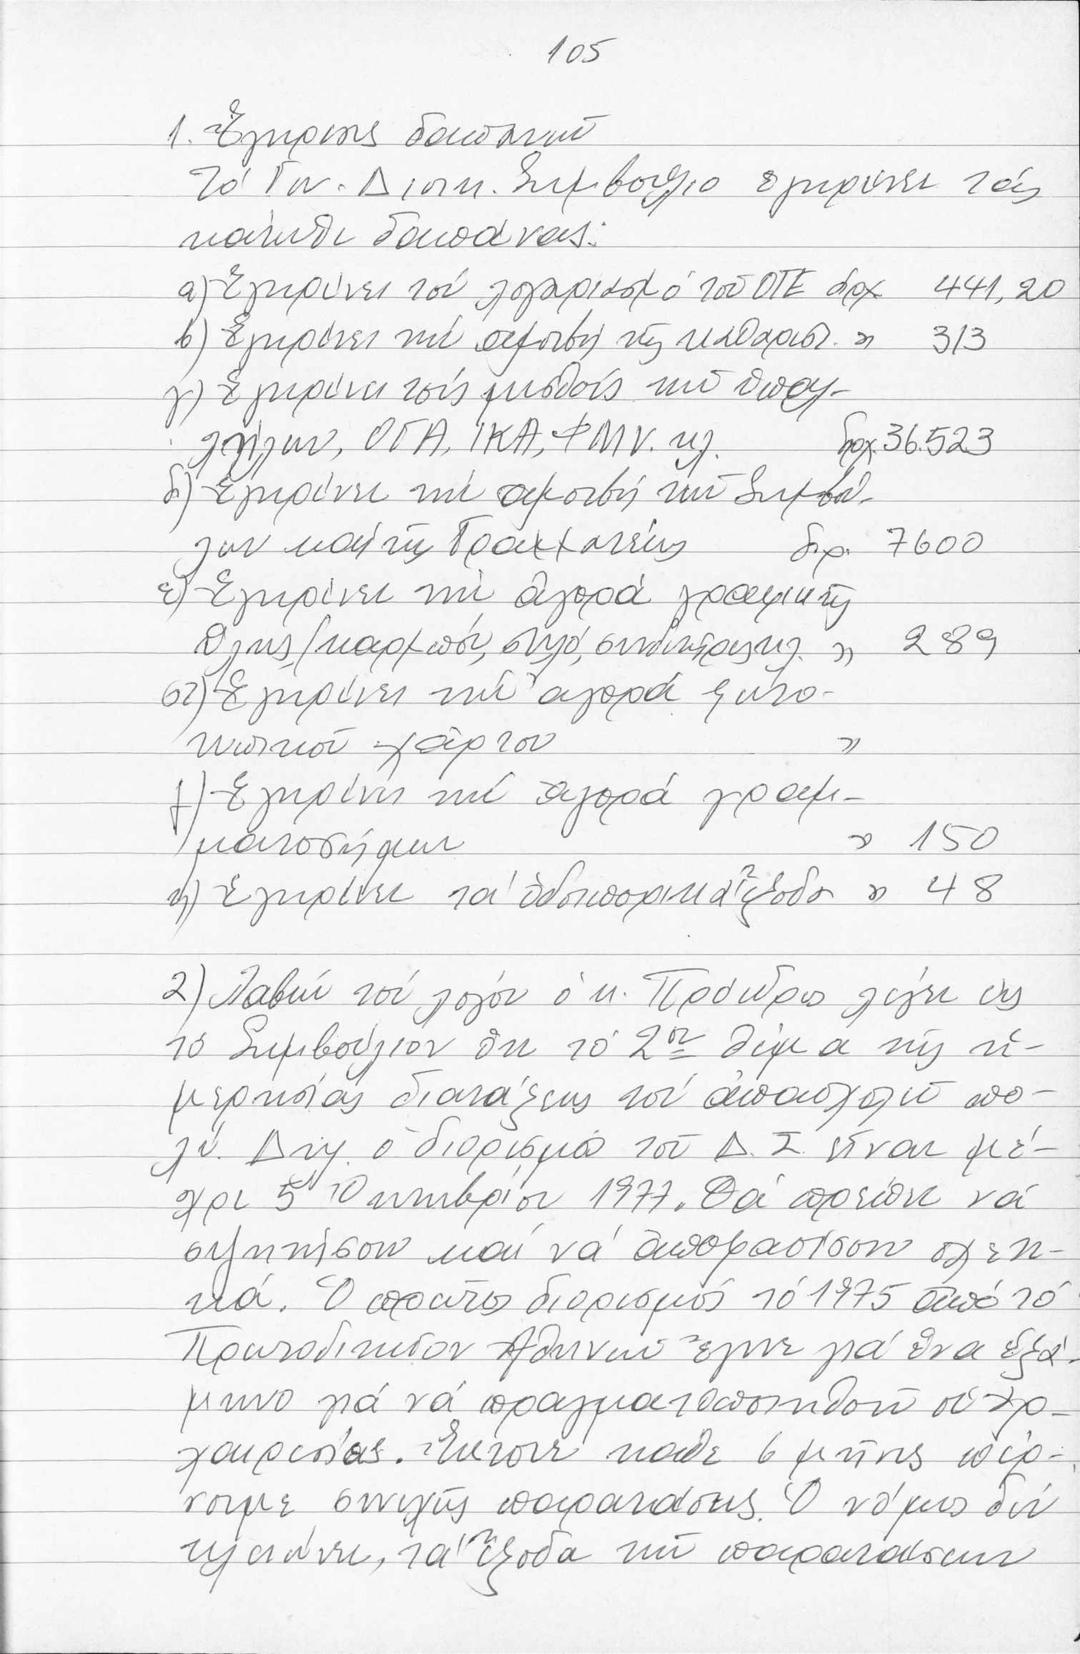 105
1. Ἔγκρισις δαπανῶν
Τό Γεν. Διοικ. Συμβούλιο ἐγκρίνει τάς
κάτωθι δαπάνας:
α) Ἐγκρίνει τόν λογαριασμό τοῦ ΟΤΕ δρχ 441,20
β) Ἐγκρίνει τήν ἀμοιβή τῆς καθαριστ. " 313
γ) Ἐγκρίνει τούς μισθούς τῶν ὑπαλ-
λήλων, ΟΓΑ, ΙΚΑ, ΦΜΥ. κλ. δρχ. 36.523
δ) Ἐγκρίνει τήν ἀμοιβή τῶν Συμβού-
λων καί τῆς Γραμματέως δρ. 7600
ε) Ἐγκρίνει τήν ἀγορά γραφικῆς
ὕλης, (καρμπόν, στυλό, συνδετῆρες κλ. " 289
στ) Ἐγκρίνει τήν ἀγορά φωτο-
τυπικοῦ χάρτου "
ζ) Ἐγκρίνει τήν ἀγορά γραμ-
ματοσήμων " 150
η) Ἐγκρίνει τά ὁδοιπορικά ἔξοδα " 48
2) Λαβών τόν λόγον ὁ κ. Πρόεδρος λέγει εἰς
τό Συμβούλιον ὅτι τό 2ον θέμα τῆς ἡ-
μερησίας διατάξεως τόν ἀπασχολεῖ πο-
λύ. Δηλ. ὁ διορισμός τοῦ Δ.Σ. εἶναι μέ-
χρι 5 Ὀκτωβρίου 1977. Θά πρέπει νά
συζητήσουν καί νά ἀποφασίσουν σχετι-
κά. Ὁ πρῶτος διορισμός τό 1975 ἀπό τό
Πρωτοδικεῖον Ἀθηνῶν ἔγινε γιά ἕνα ἑξά-
μηνο γιά νά πραγματοποιηθοῦν οἱ ἀρ-
χαιρεσίες. Ἔκτοτε κάθε 6 μῆνες παίρ-
νουμε συνεχῆς παρατάσεις. Ὁ νόμος δέν
τελειώνει, τά ἔξοδα τῶν παρατάσεων